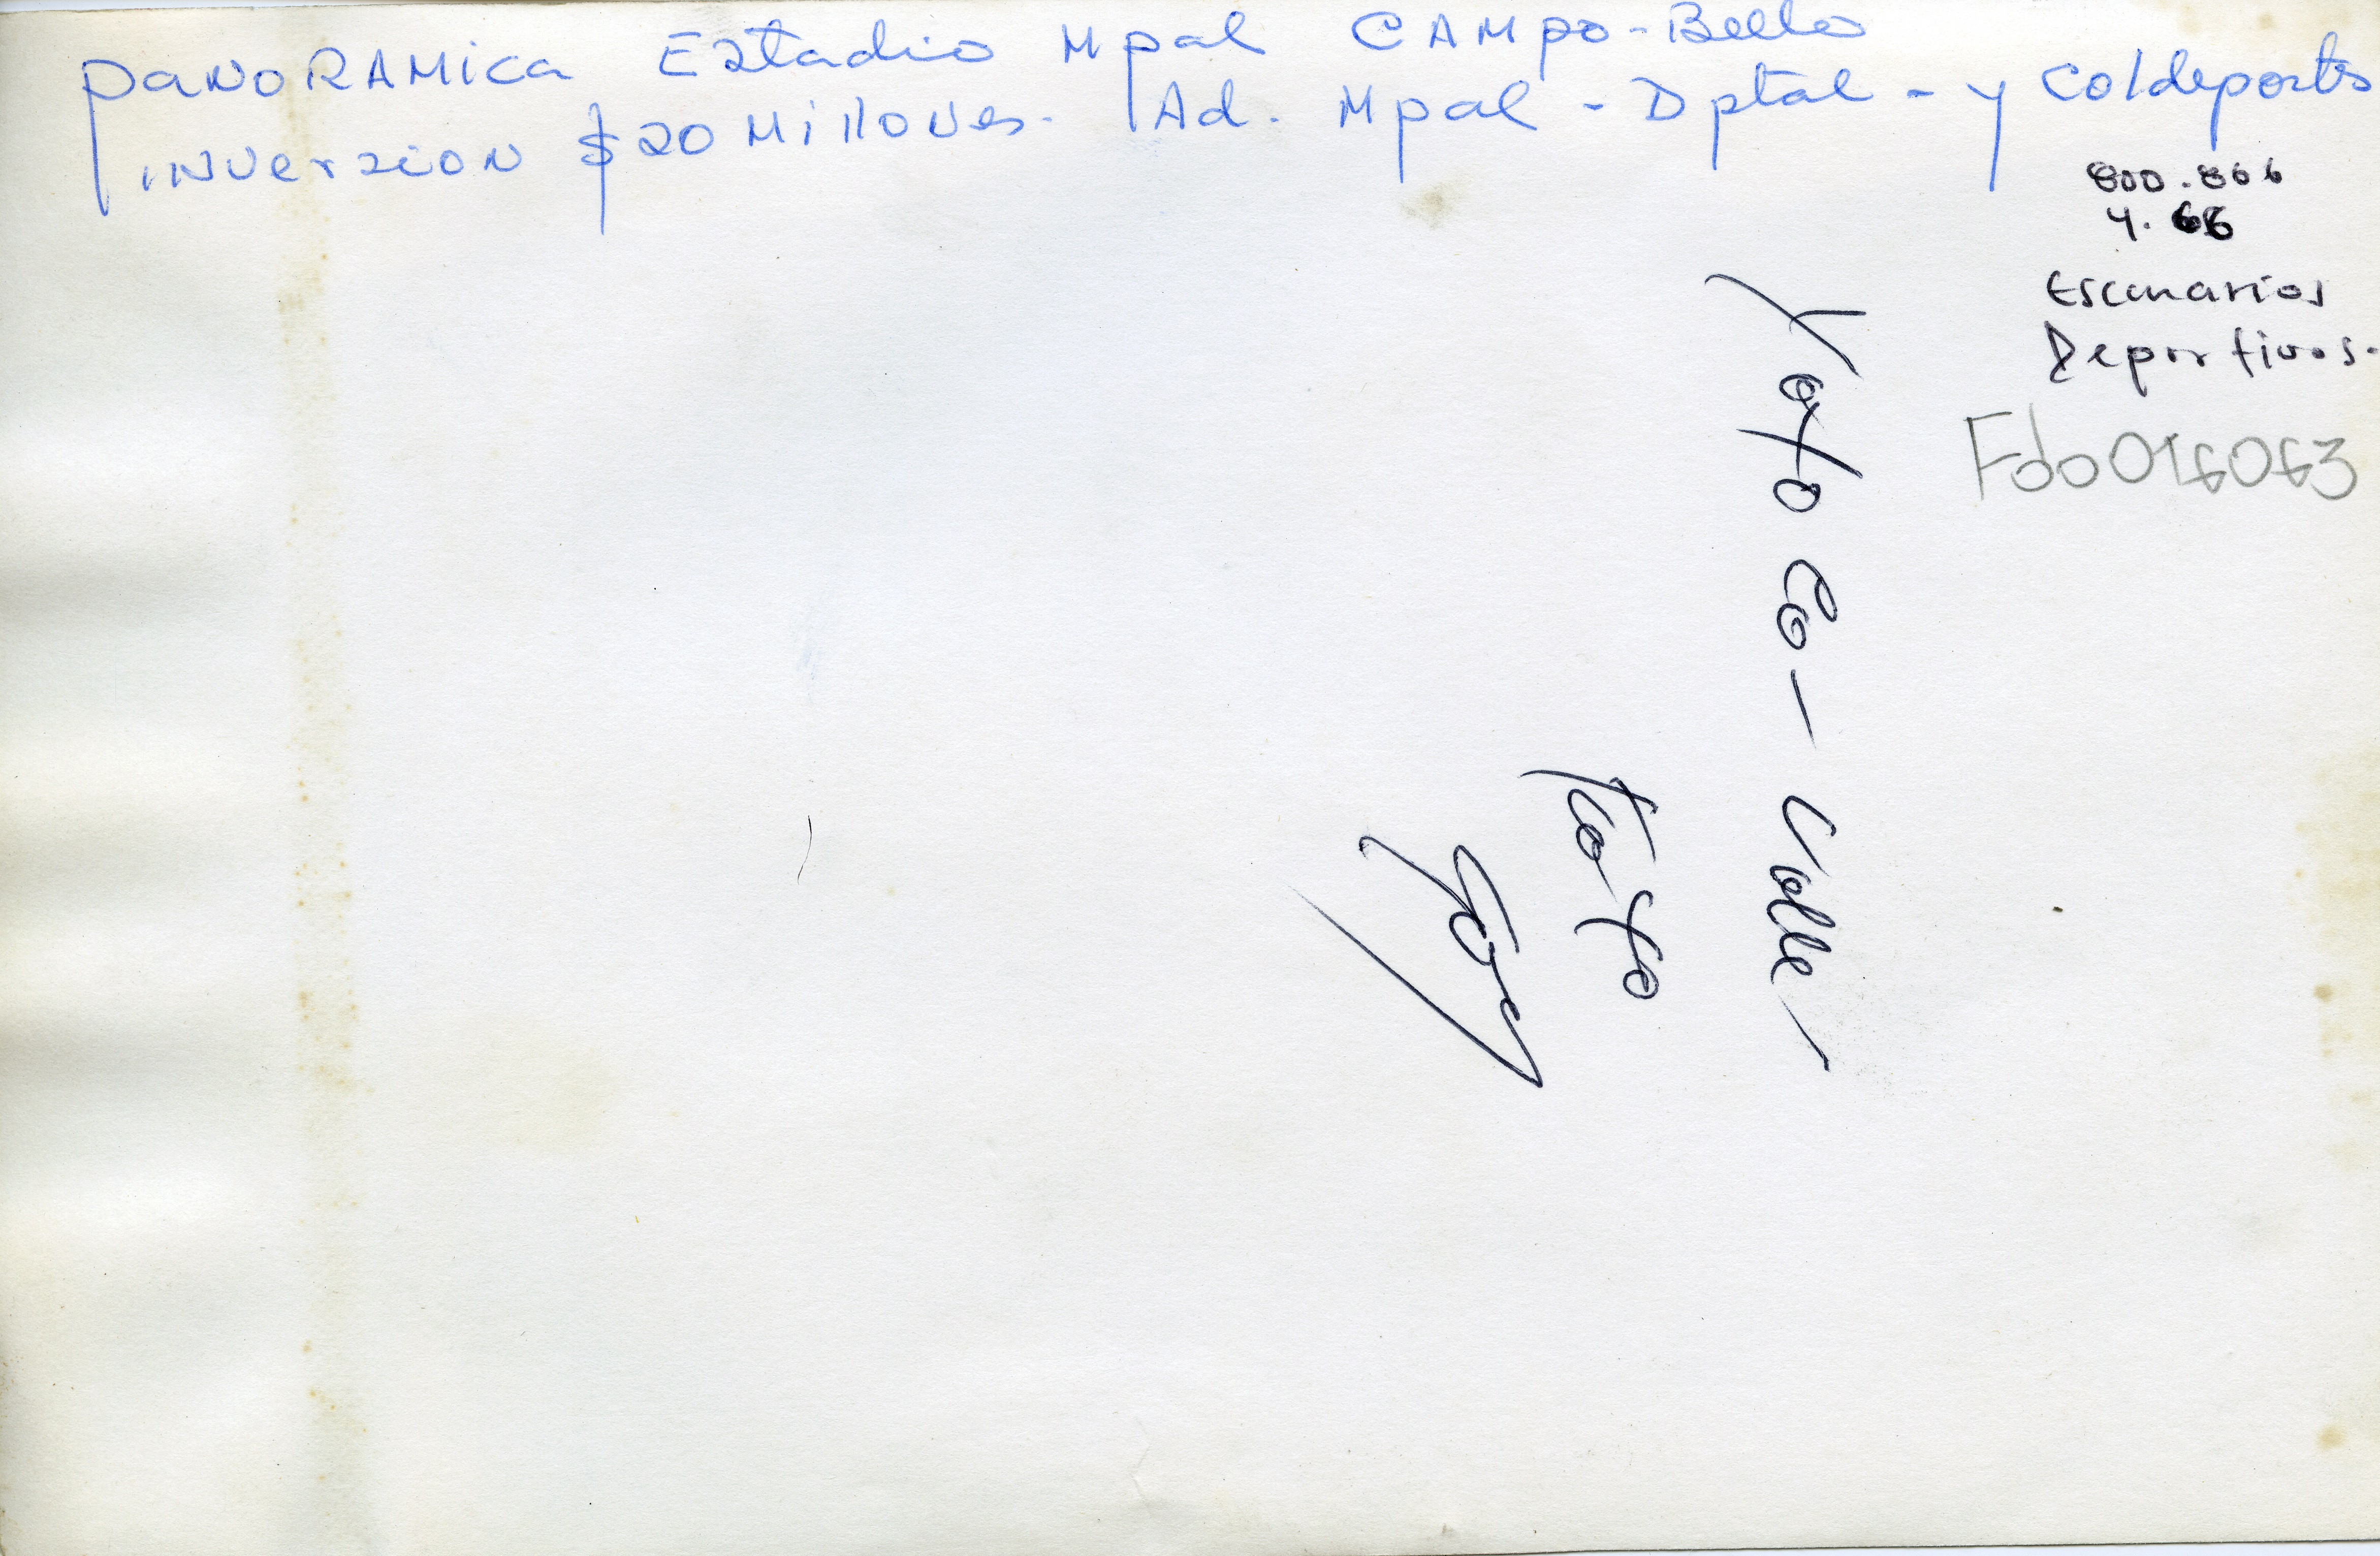 PANORAMICA Estadio Mpal CAMpo-Bello
INVersion $20 Millones. Ad. Mpal - Dptal - y Coldeportes
800.866
4.66
Escenarios
Deportivos.
Fdo016063
Yotoco - Valle
Foto